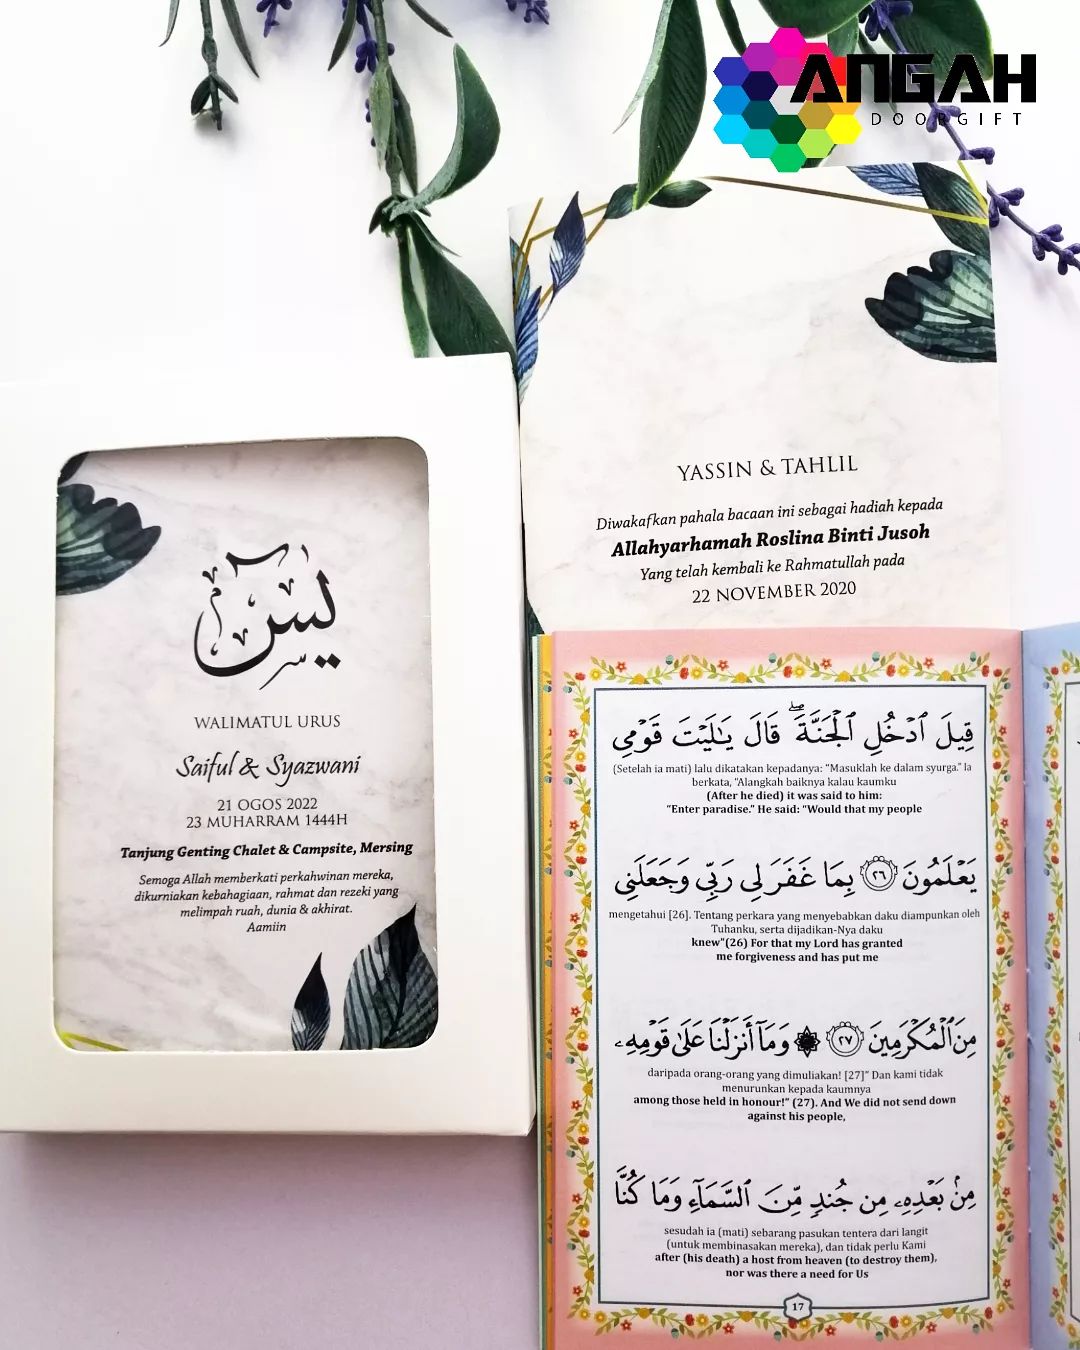 ANGAH
DOORGIFT
YASSIN & TAHLIL
Diwakafkan pahala bacaan ini sebagai hadiah kepada
Allahyarhamah Roslina Binti Jusoh
Yang telah kembali ke Rahmatullah pada
22 NOVEMBER 2020
يس
WALIMATUL URUS
Saiful & Syazwani
21 OGOS 2022
23 MUHARRAM 1444H
Tanjung Genting Chalet & Campsite, Mersing
Semoga Allah memberkati perkahwinan mereka,
dikurniakan kebahagiaan, rahmat dan rezeki yang
melimpah ruah, dunia & akhirat.
Aamiin
قِيلَ ٱدْخُلِ ٱلْجَنَّةَ ۖ قَالَ يَـٰلَيْتَ قَوْمِى
(Setelah ia mati) lalu dikatakan kepadanya: “Masuklah ke dalam syurga.” Ia
berkata, “Alangkah baiknya kalau kaumku
(After he died) it was said to him:
“Enter paradise.” He said: “Would that my people
يَعْلَمُونَ ٢٦ بِمَا غَفَرَ لِى رَبِّى وَجَعَلَنِى
mengetahui [26]. Tentang perkara yang menyebabkan daku diampunkan oleh
Tuhanku, serta dijadikan-Nya daku
knew”(26) For that my Lord has granted
me forgiveness and has put me
مِنَ ٱلْمُكْرَمِينَ ٢٧ ۞ وَمَآ أَنزَلْنَا عَلَىٰ قَوْمِهِۦ
daripada orang-orang yang dimuliakan! [27]” Dan kami tidak
menurunkan kepada kaumnya
among those held in honour!” (27). And We did not send down
against his people,
مِنۢ بَعْدِهِۦ مِن جُندٍ مِّنَ ٱلسَّمَآءِ وَمَا كُنَّا
sesudah ia (mati) sebarang pasukan tentera dari langit
(untuk membinasakan mereka), dan tidak perlu Kami
after (his death) a host from heaven (to destroy them),
nor was there a need for Us
17